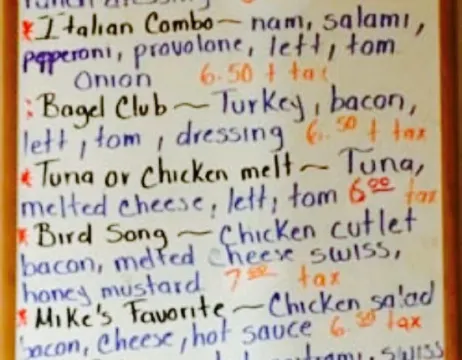 *Italian Combo ~ nam, salami,
pepperoni, provolone, lett, tom
Onion 6.50 + tax
*Bagel Club ~ Turkey, bacon,
lett, tom, dressing 6.50 + tax
*Tuna or chicken melt ~ Tuna,
melted cheese, lett, tom 6.00 tax
*Bird Song ~ Chicken cutlet
bacon, melted cheese swiss,
honey mustard 7.00 tax
*Mike's Favorite ~ Chicken salad
bacon, cheese, hot sauce 6.50 tax
swiss